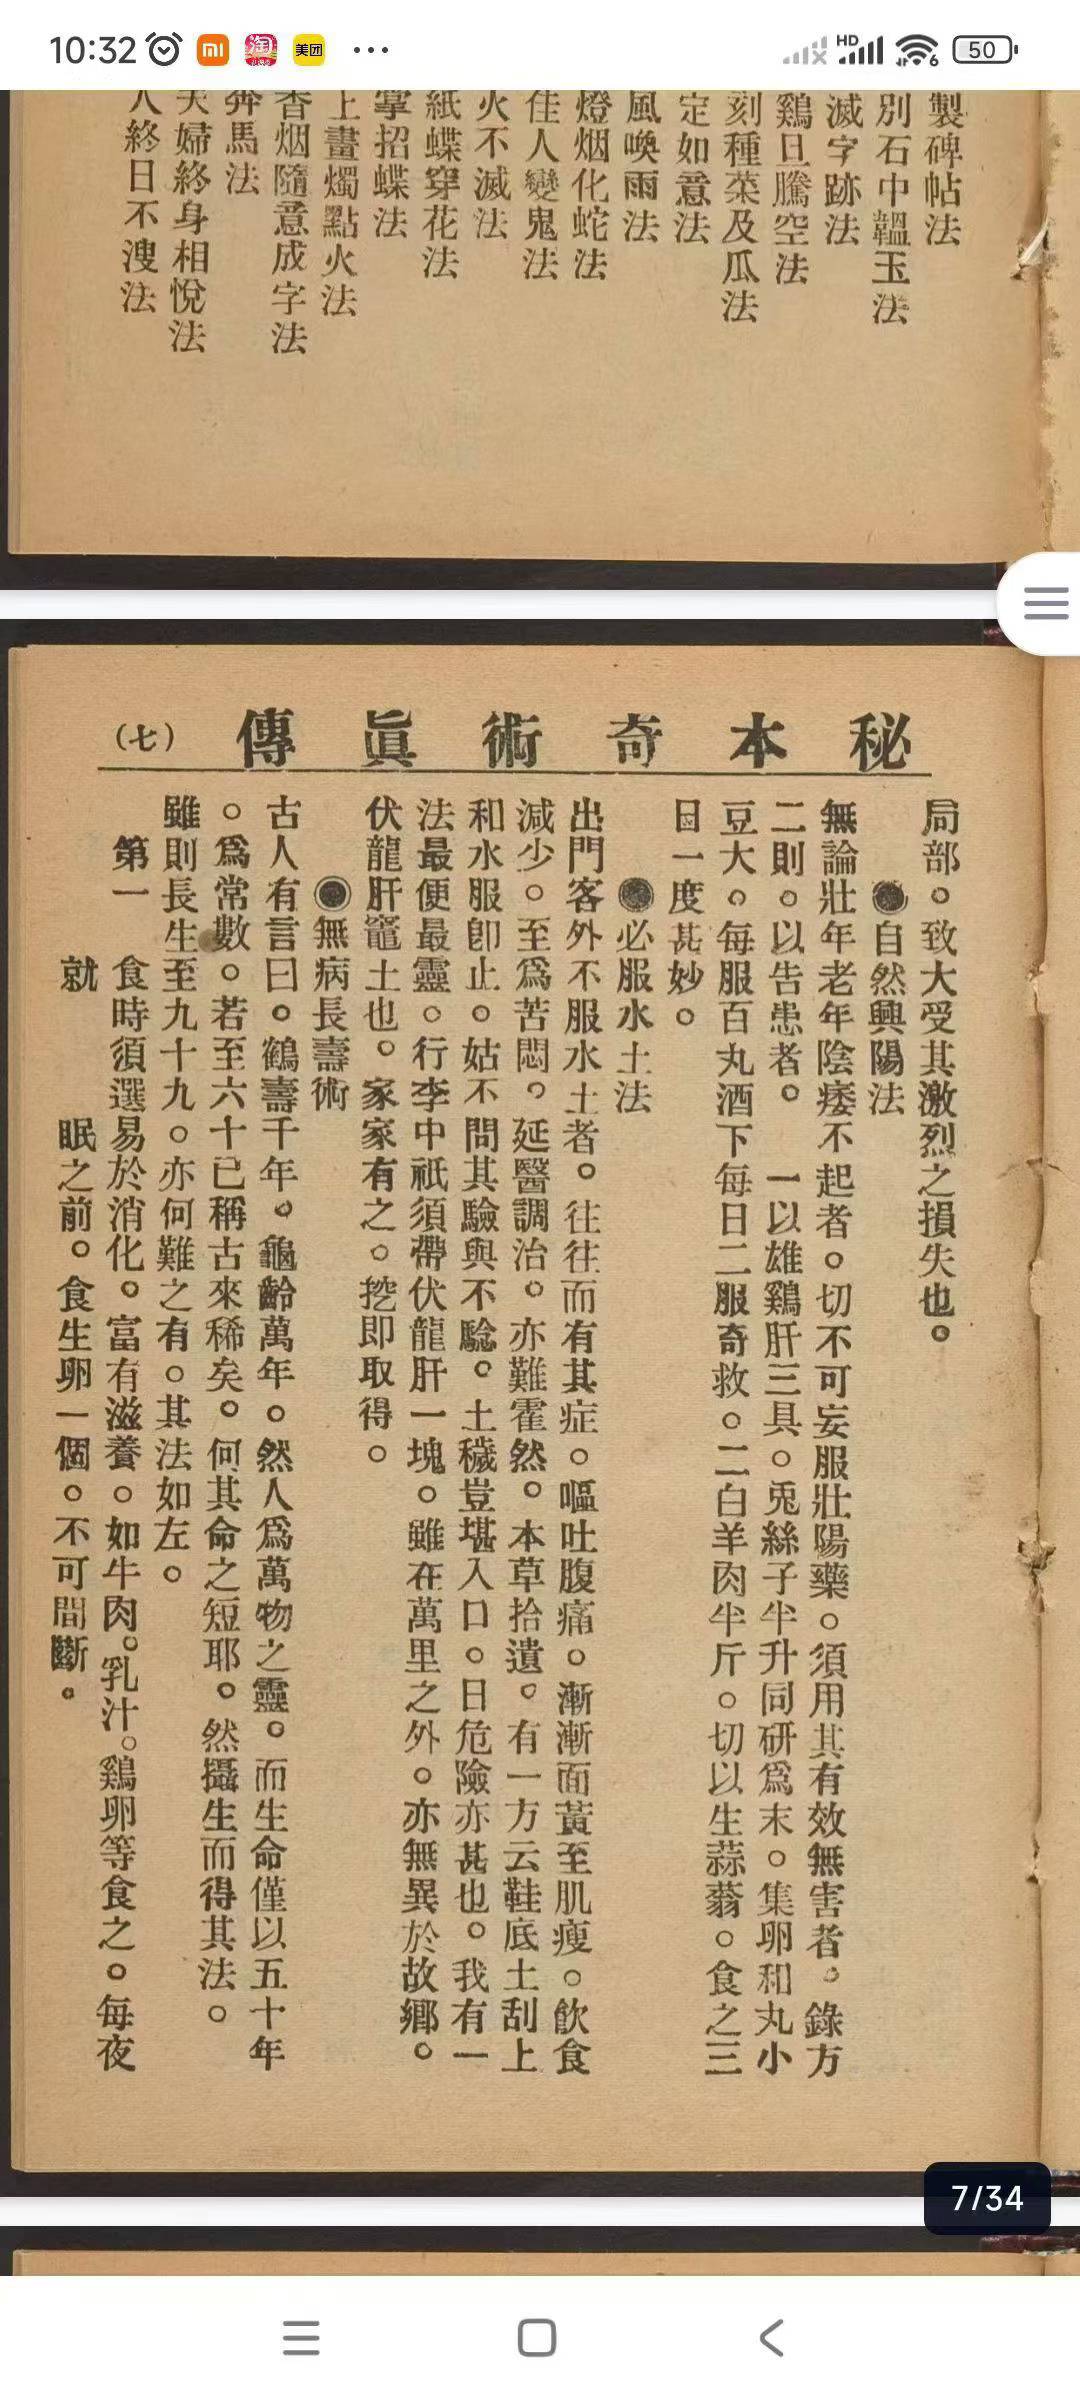 10:32
HD
6
50
美团
製碑帖法
別石中韞玉法
滅字跡法
鷄旦騰空法
刻種菜及瓜法
定如意法
風喚雨法
燈烟化蛇法
佳人變鬼法
火不滅法
紙蝶穿花法
掌招蝶法
上畫燭點火法
香烟隨意成字法
奔馬法
夫婦終身相悅法
人終日不溲法
秘本奇術眞傳
(七)
局部。致大受其激烈之損失也。
◉自然興陽法
無論壯年老年陰痿不起者。切不可妄服壯陽藥。須用其有效無害者。錄方
二則。以告患者。 一以雄鷄肝三具。兎絲子半升同研爲末。集卵和丸小
豆大。每服百丸酒下每日二服奇救。二白羊肉半斤。切以生蒜蓊。食之三
日一度甚妙。
◉必服水土法
出門客外不服水土者。往往而有其症。嘔吐腹痛。漸漸面黃至肌瘦。飮食
減少。至爲苦悶。延醫調治。亦難霍然。本草拾遺。有一方云鞋底土刮上
和水服卽止。姑不問其驗與不騐。土穢豈堪入口。日危險亦甚也。我有一
法最便最靈。行李中祇須帶伏龍肝一塊。雖在萬里之外。亦無異於故鄉。
伏龍肝竈土也。家家有之。挖即取得。
◉無病長壽術
古人有言曰。鶴壽千年。龜齡萬年。然人爲萬物之靈。而生命僅以五十年
。爲常數。若至六十已稱古來稀矣。何其命之短耶。然攝生而得其法。
雖則長生至九十九。亦何難之有。其法如左。
第一 食時須選易於消化。富有滋養。如牛肉。乳汁。鷄卵等食之。每夜
就 眠之前。食生卵一個。不可間斷。
7/34